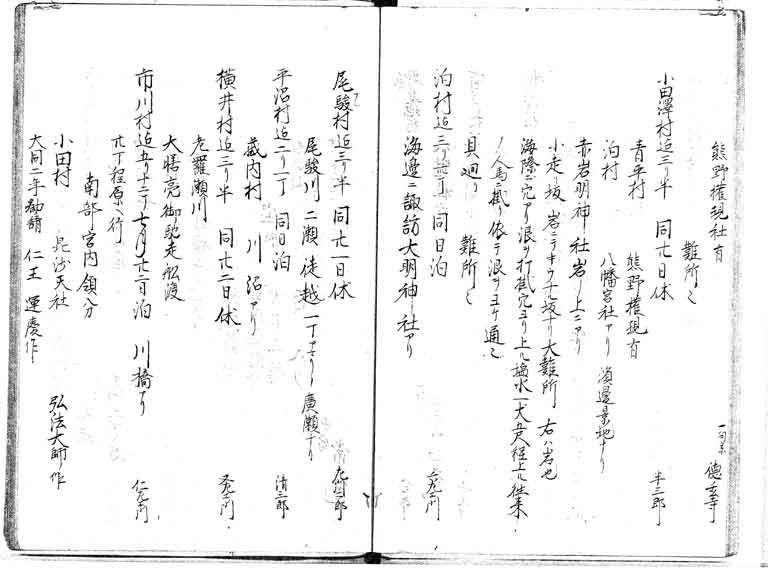 熊野権現社有
難所也
一向宗 德玄寺
小田澤村迄三り半 同廿日休
半三郎
青平村 熊野権現有
泊村 八幡宮社アリ 濱邊景地ナリ
赤岩明神ノ社岩ノ上ニアリ
小走坂 岩ニテキウナル坂ナリ 大難所 右ハ岩也
海際ニ穴アリ浪ヲ打
穴ヨリ上ル 塩水一丈五尺程上ル 往来ノ
人馬ニ 依テ浪ヲヨケ通ル
貝廻り 難所也
泊村迄三リ 同日泊
海邊ニ諏訪大明神ノ社アリ
尾駿村迄三リ半 同廿一日休
尾駿川 二瀬 徒越 一丁 廣瀬ナリ
平沼村迄二リ一丁 同日泊
清三郎
蔵内村 川沼アリ
横井村迄三リ半 同廿二日休
老羅瀬川
大膳亮御馳走舩渡
市川村迄五リ十二丁 七月廿二日泊 川橋アリ
仁左衛門
廿丁程原ヘ行
南部宮内領分
小田村 毘沙天社 弘法大師ノ作
大同二年勧請 仁王 運慶作